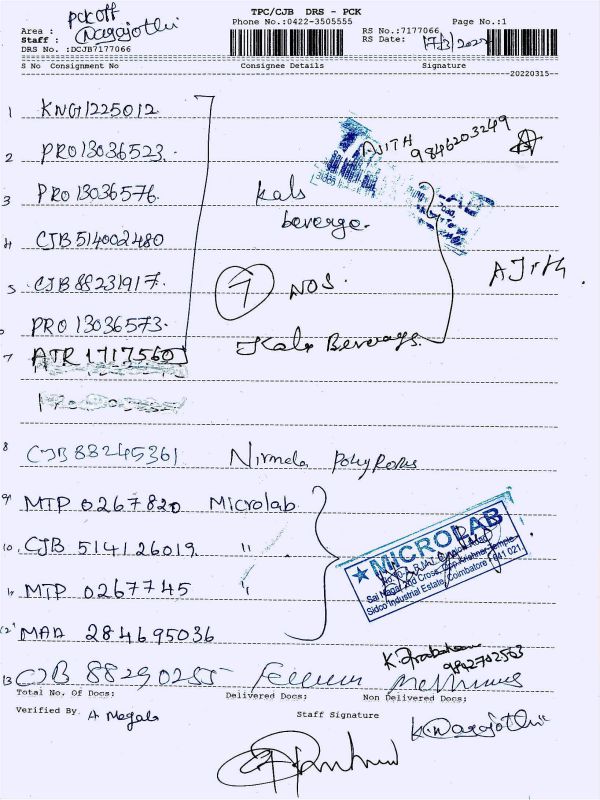 TPC/CJB DRS - PCK
Phone No.:0422-3505555
Page No.:1
pck off
Area :
Staff : Nagajothi
DRS No. :DCJB7177066
RS No.:7177066
RS Date: 17/3/2022
S No Consignment No Consignee Details Signature
20220315
1 KNG1225012
2 PRO13036523.
3 PRO13036576.
4 CJB514002480
5 CJB88231917.
PRO13036573.
7 ATR1717560
Kals
beverge.
7 NOS.
Kals Beverags.
AJITH
9846203249
AJith.
8 CJB88245361 Nirmala
9 MTP 0267820 Microlab
10. CJB 514126019 "
MTP 0267745 "
12 MAA 284695036
★ MICROLAB
Sai Nagar
Sidco Industrial Estate, Coimbatore - 641 021.
K. Prabakaran
9842702563
13 CJB 88290255
Total No. Of Docs: Delivered Docs: Non Delivered Docs:
Verified By A Megala
Staff Signature
K. Nagajothi